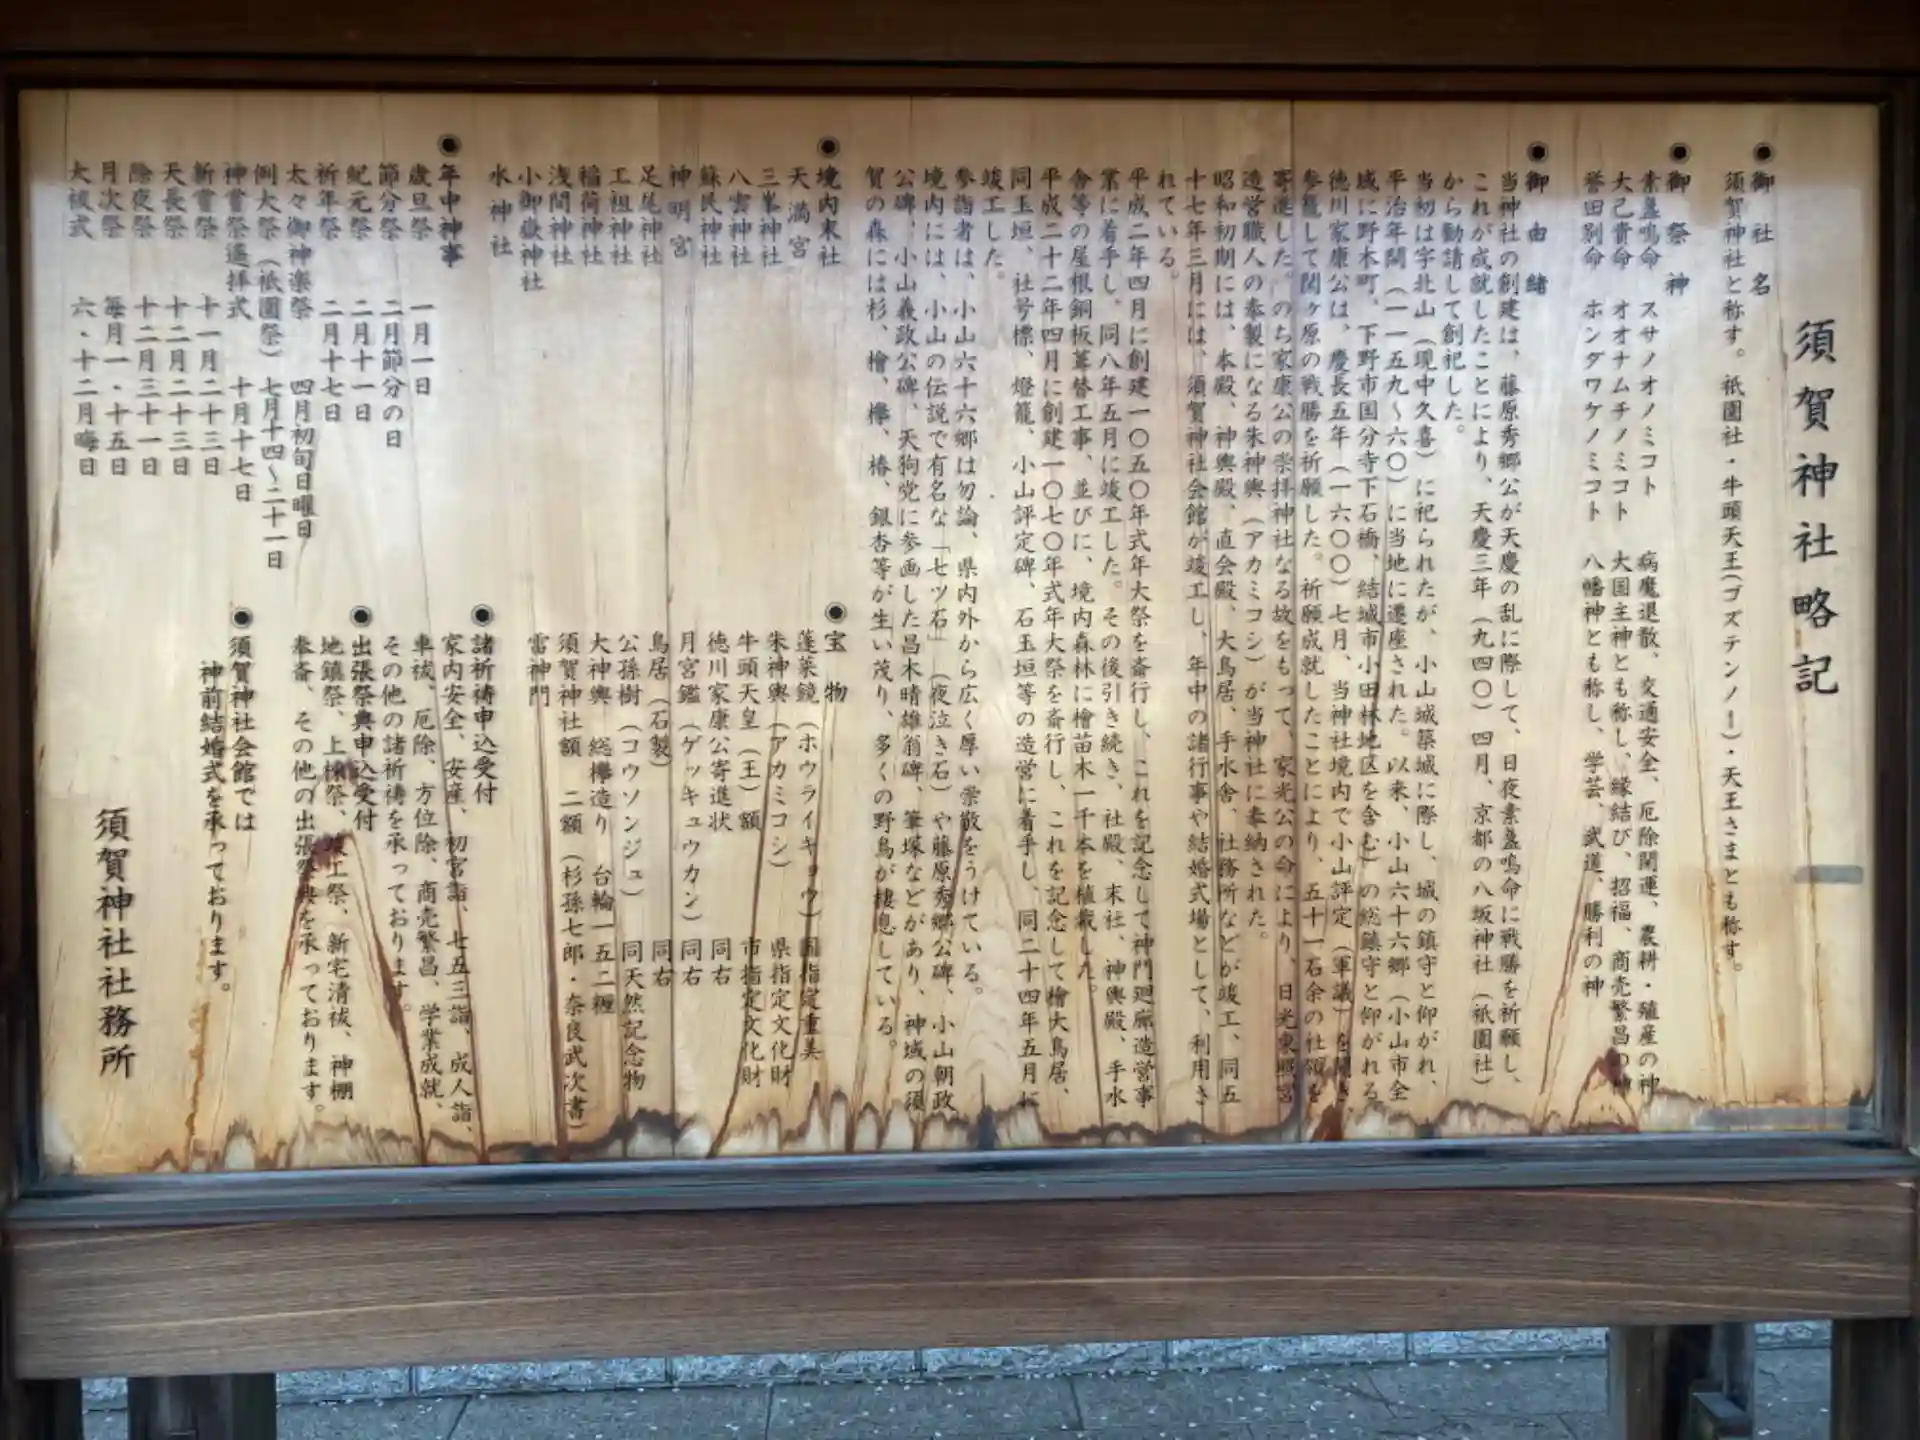 須賀神社略記
◉御社名
須賀神社と称す。祇園社・牛頭天王(ゴズテンノー)・天王さまとも称す。
◉御祭神
素盞鳴命 スサノオノミコト 病魔退散、交通安全、厄除開運、農耕・殖産の神
大己貴命 オオナムチノミコト 大国主神とも称し、縁結び、招福、商売繁昌の神
誉田別命 ホンダワケノミコト 八幡神とも称し、学芸、武道、勝利の神
◉御由緒
当神社の創建は、藤原秀郷公が天慶の乱に際して、日夜素盞鳴命に戦勝を祈願し、
これが成就したことにより、天慶三年(九四〇)四月、京都の八坂神社(祇園社)
から勧請して創祀した。
当初は字北山(現中久喜)に祀られたが、小山城築城に際し、城の鎮守と仰がれ、
平治年間(一一五九〜六〇)に当地に遷座された。以来、小山六十六郷(小山市全
域に野木町、下野市国分寺下石橋、結城市小田林地区を含む)の総鎮守と仰がれる。
徳川家康公は、慶長五年(一六〇〇)七月、当神社境内で小山評定(軍議)を開き、
参籠して関ヶ原の戦勝を祈願した。祈願成就したことにより、五十一石余の社領を
寄進した。のち家康公の崇拝神社なる故をもって、家光公の命により、日光東照宮
造営職人の奉製になる朱神輿(アカミコシ)が当神社に奉納された。
昭和初期には、本殿、神輿殿、直会殿、大鳥居、手水舎、社務所などが竣工、同五
十七年三月には、須賀神社会館が竣工し、年中の諸行事や結婚式場として、利用さ
れている。
平成二年四月に創建一〇五〇年式年大祭を斎行し、これを記念して神門廻廊造営事
業に着手し、同八年五月に竣工した。その後引き続き、社殿、末社、神輿殿、手水
舎等の屋根銅板葺替工事、並びに、境内森林に檜苗木一千本を植栽した。
平成二十二年四月に創建一〇七〇年式年大祭を斎行し、これを記念して檜大鳥居、
同玉垣、社号標、燈籠、小山評定碑、石玉垣等の造営に着手し、同二十四年五月に
竣工した。
参詣者は、小山六十六郷は勿論、県内外から広く厚い崇敬をうけている。
境内には、小山の伝説で有名な「七ツ石」(夜泣き石)や藤原秀郷公碑、小山朝政
公碑、小山義政公碑、天狗党に参画した昌木晴雄翁碑、筆塚などがあり、神域の須
賀の森には杉、檜、欅、椿、銀杏等が生い茂り、多くの野鳥が棲息している。
◉境内末社
天満宮
三峯神社
八雲神社
蘇民神社
神明宮
足尾神社
工祖神社
稲荷神社
浅間神社
小御嶽神社
水神社
◉宝物
蓬莱鏡(ホウライキョウ) 国指定重美
朱神輿(アカミコシ) 県指定文化財
牛頭天皇(王)額 市指定文化財
徳川家康公寄進状 同右
月宮鑑(ゲッキュウカン) 同右
鳥居(石製) 同右
公孫樹(コウソンジュ) 同天然記念物
大神輿 総欅造り 台輪一五二糎
須賀神社額 二額(杉孫七郎・奈良武次書)
雷神門
◉年中神事
歳旦祭 一月一日
節分祭 二月節分の日
紀元祭 二月十一日
祈年祭 二月十七日
太々御神楽祭 四月初旬日曜日
例大祭(祇園祭) 七月十四〜二十一日
神嘗祭遥拝式 十月十七日
新嘗祭 十一月二十三日
天長祭 十二月二十三日
除夜祭 十二月三十一日
月次祭 毎月一・十五日
大祓式 六・十二月晦日
◉諸祈祷申込受付
家内安全、安産、初宮詣、七五三詣、成人詣、
車祓、厄除、方位除、商売繁昌、学業成就、
その他の諸祈祷を承っております。
◉出張祭典申込受付
地鎮祭、上棟祭、竣工祭、新宅清祓、神棚
奉斎、その他の出張祭典を承っております。
◉須賀神社会館では
神前結婚式を承っております。
須賀神社社務所